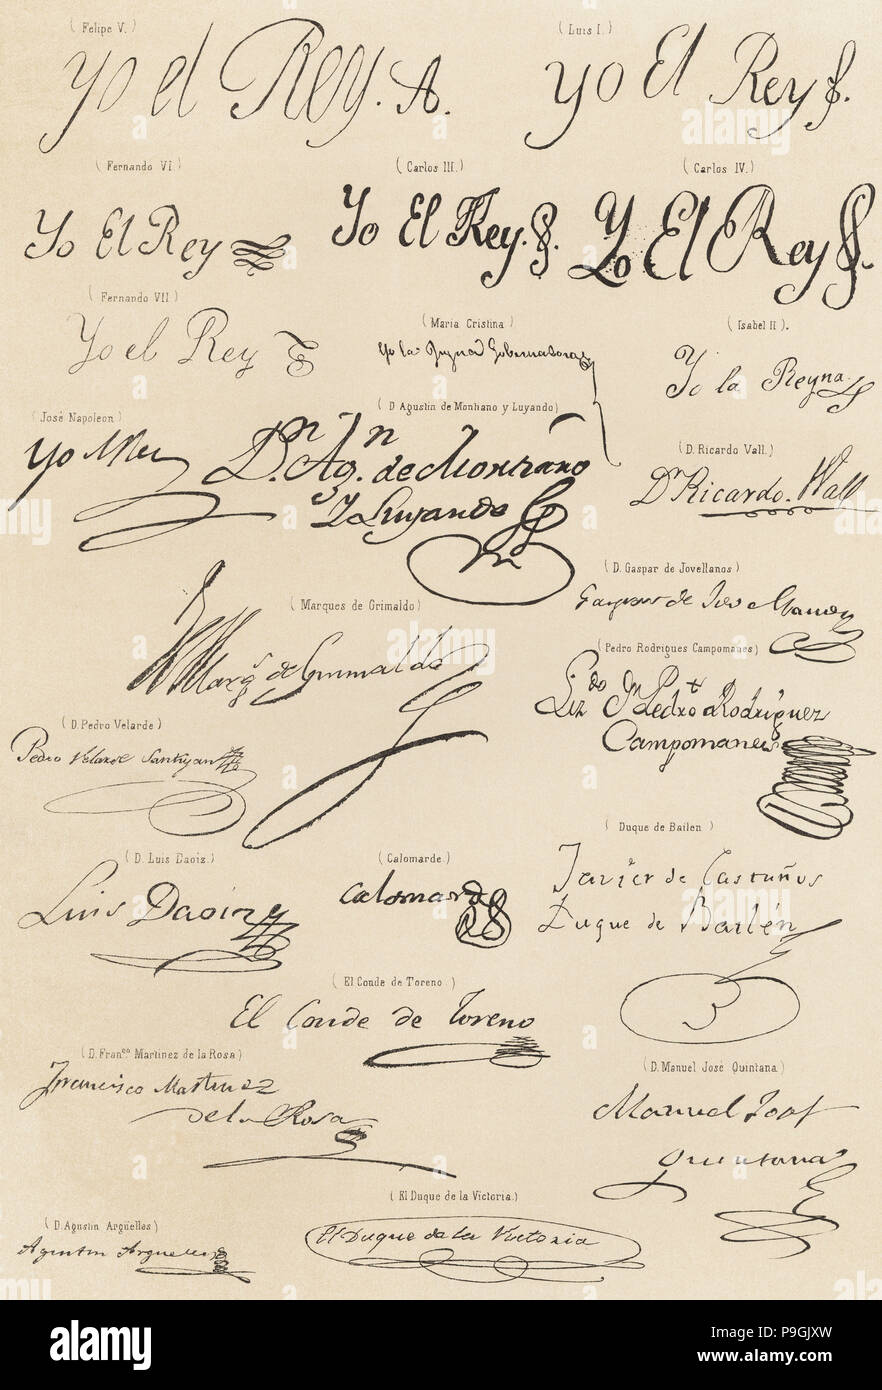 (Felipe V.)
Yo el Rey. A.
(Luis I.)
Yo El Rey
(Fernando VI.)
Yo El Rey
(Carlos III.)
Yo El Rey.
(Carlos IV.)
Yo El Rey
(Fernando VII)
Yo el Rey
(Maria Cristina)
Yo la Reyna Gobernadora
(Isabel II).
Yo la Reyna
(José Napoleon)
Yo el Rey
(D Agustin de Montiano y Luyando)
Dn. Agn. de Montiano
y Luyando
(D. Ricardo Vall.)
Dn Ricardo. Wall
(D. Gaspar de Jovellanos)
Gaspar de Jovellanos
(Marques de Grimaldo)
El Marqs. de Grimaldo
(Pedro Rodrigues Campomanes)
Lizdo Dn Pedro Rodriguez
Campomanes
(D. Pedro Velarde)
Pedro Velarde Santiyan
(D. Luis Daoiz.)
Luis Daoiz
(Calomarde.)
Calomarde
(Duque de Bailen)
Javier de Castaños
Duque de Bailén
(El Conde de Toreno.)
El Conde de Toreno
(D. Franco. Martinez de la Rosa)
Francisco Martinez
de la Rosa
(D. Manuel José Quintana)
Manuel Josef
Quintana
(El Duque de la Victoria.)
El Duque de la Victoria
(D. Agustin Argüelles)
Agustin Arguelles
alamy
Image ID: P9GJXW
www.alamy.com